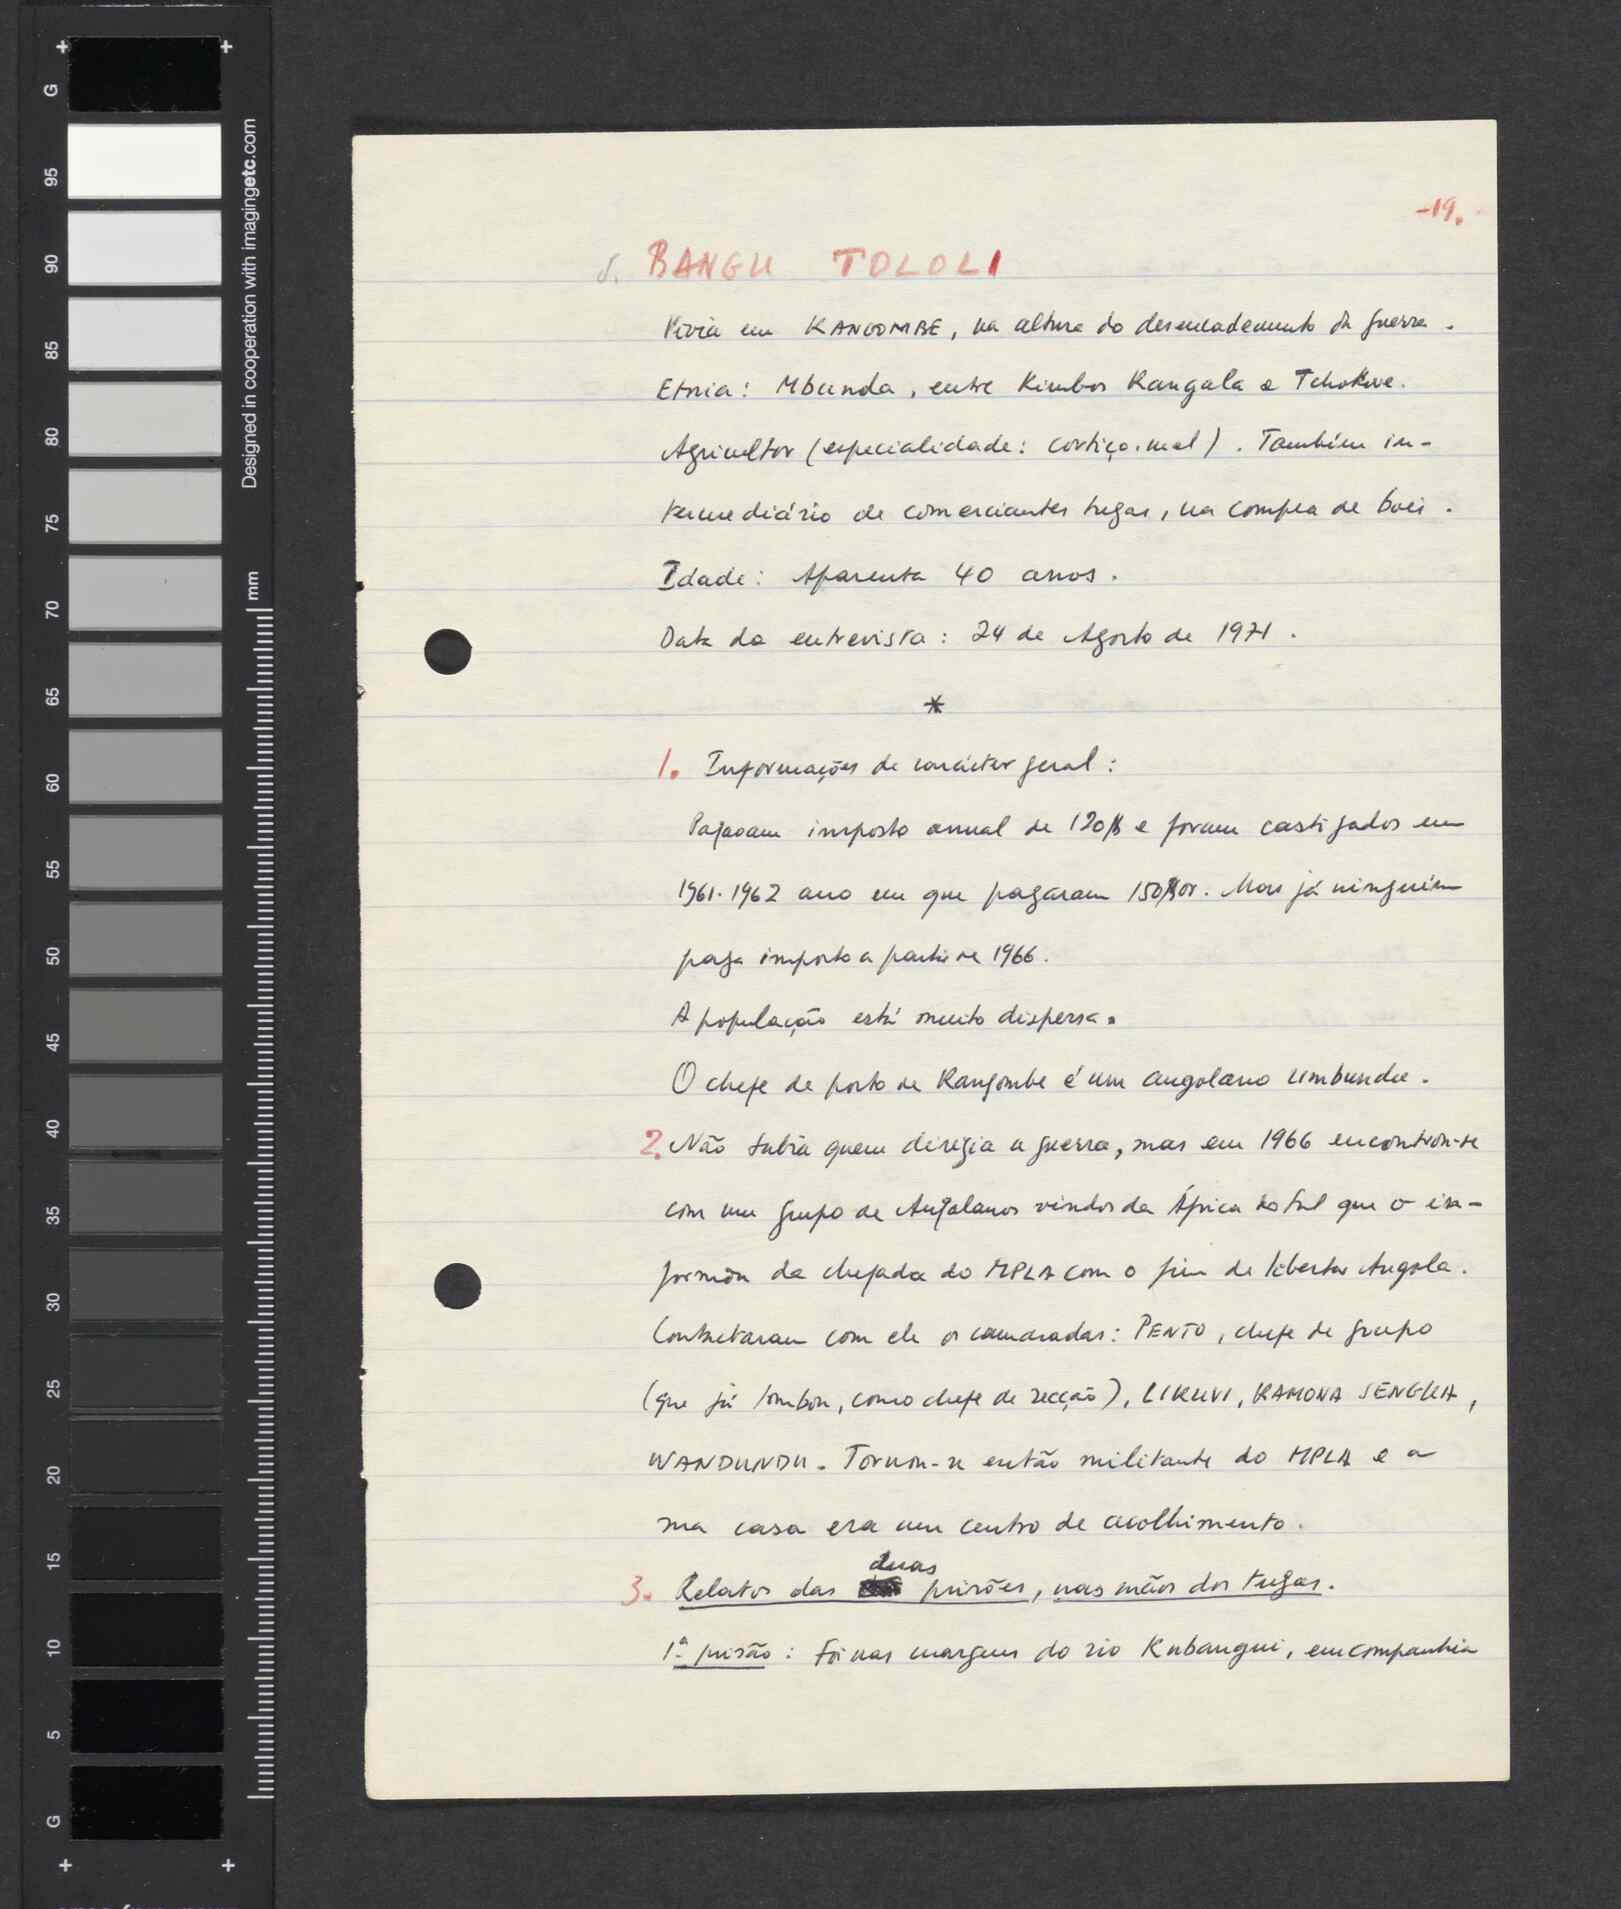 -19.
5. BANGU TOLOLI
Vivia em KANGOMBE, na altura do desencadeamento da guerra.
Etnia: Mbunda, entre Kimbos Kangala e Tchokwe.
Agricultor (especialidade: cortiço-mel). Também in-
termediário de comerciantes tugas, na compra de bois.
Idade: Aparenta 40 anos.
Data da entrevista: 24 de Agosto de 1971.
*
1. Informações de carácter geral:
Pagavam imposto anual de 120$ e foram castigados em
1961-1962 ano em que pagaram 150$00. Mas já ninguém
paga imposto a partir de 1966.
A população está muito dispersa.
O chefe de posto de Kangombe é um angolano umbundu.
2. Não sabia quem dirigia a guerra, mas em 1966 encontrou-se
com um grupo de Angolanos vindos da África do Sul que o in-
formou da chegada do MPLA com o fim de libertar Angola.
Contactaram com ele os camaradas: PENTO, chefe de grupo
(que já tombou, como chefe de secção), LIKUVI, KAMONA SENGUA,
WANDUNDU. Tornou-se então militante do MPLA e a
sua casa era um centro de acolhimento.
duas
3. Relatos das prisões, nas mãos dos tugas.
1ª prisão: Foi nas margens do rio Kubangui, em companhia